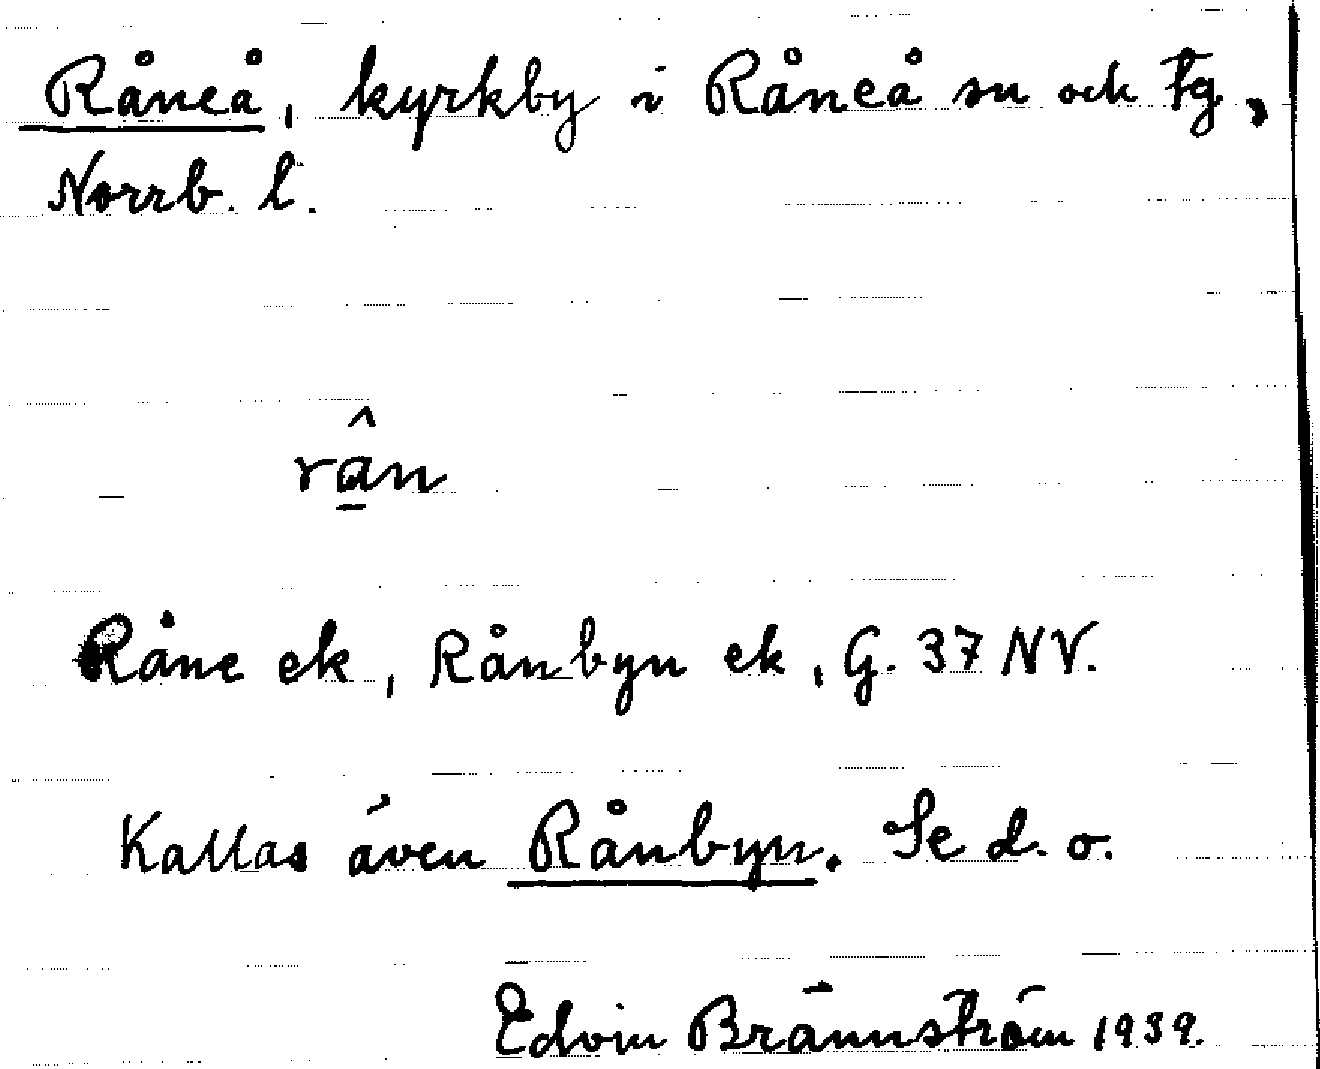 Råneå, kyrkby i Råneå sn och tg,
Norrb. l.
rân
Råne ek, Rånbyn ek, G. 37 NV.
Kallas även Rånbyn. Se d. o.
Edvin Brännström 1939.